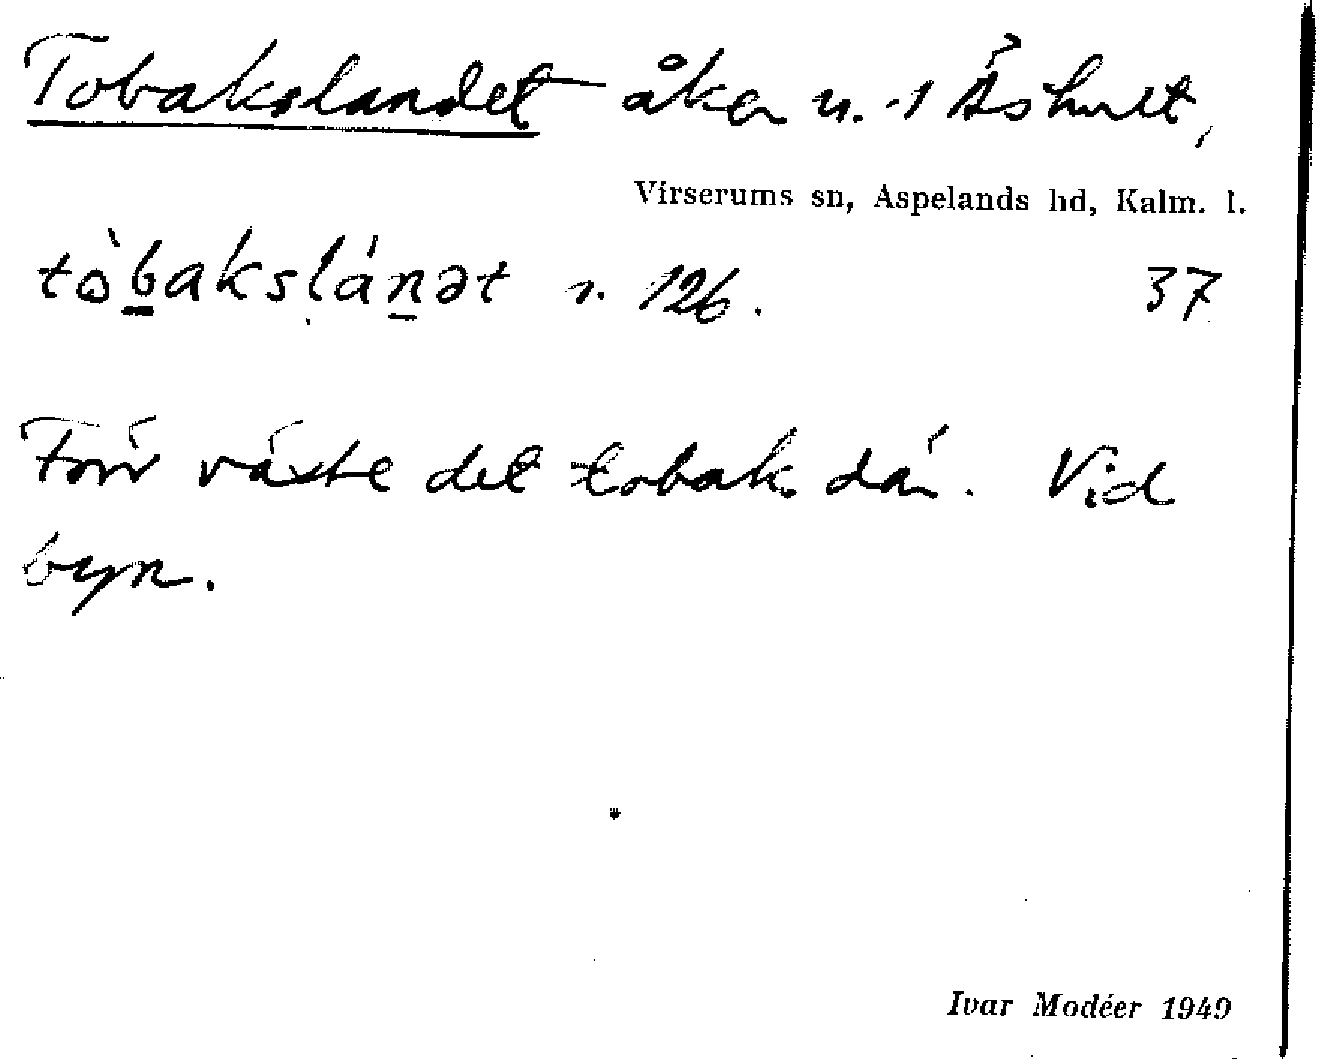 Tobakslandet åker n. 1 Åshult,
Virserums sn, Aspelands hd, Kalm. l.
tòbakslánət n. 126. 37
Förr växte det tobak där. Vid
byn.
Ivar Modéer 1949